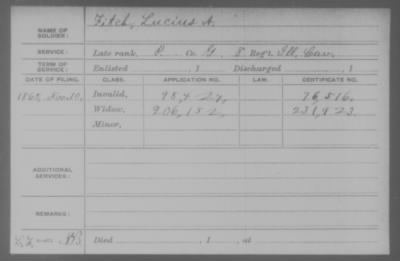 NAME OF SOLDIER: Fitch, Lucius A.
SERVICE: Late rank, P. Co. G, 8 Reg't Ill. Cav.
TERM OF SERVICE: Enlisted , 1 Discharged , 1
DATE OF FILING. CLASS. APPLICATION NO. LAW. CERTIFICATE NO.
1865, Nov. 10, Invalid, 76,516.
Widow, 206,152, 231,923.
Minor,
ADDITIONAL SERVICES:
REMARKS:
Died , 1 , at